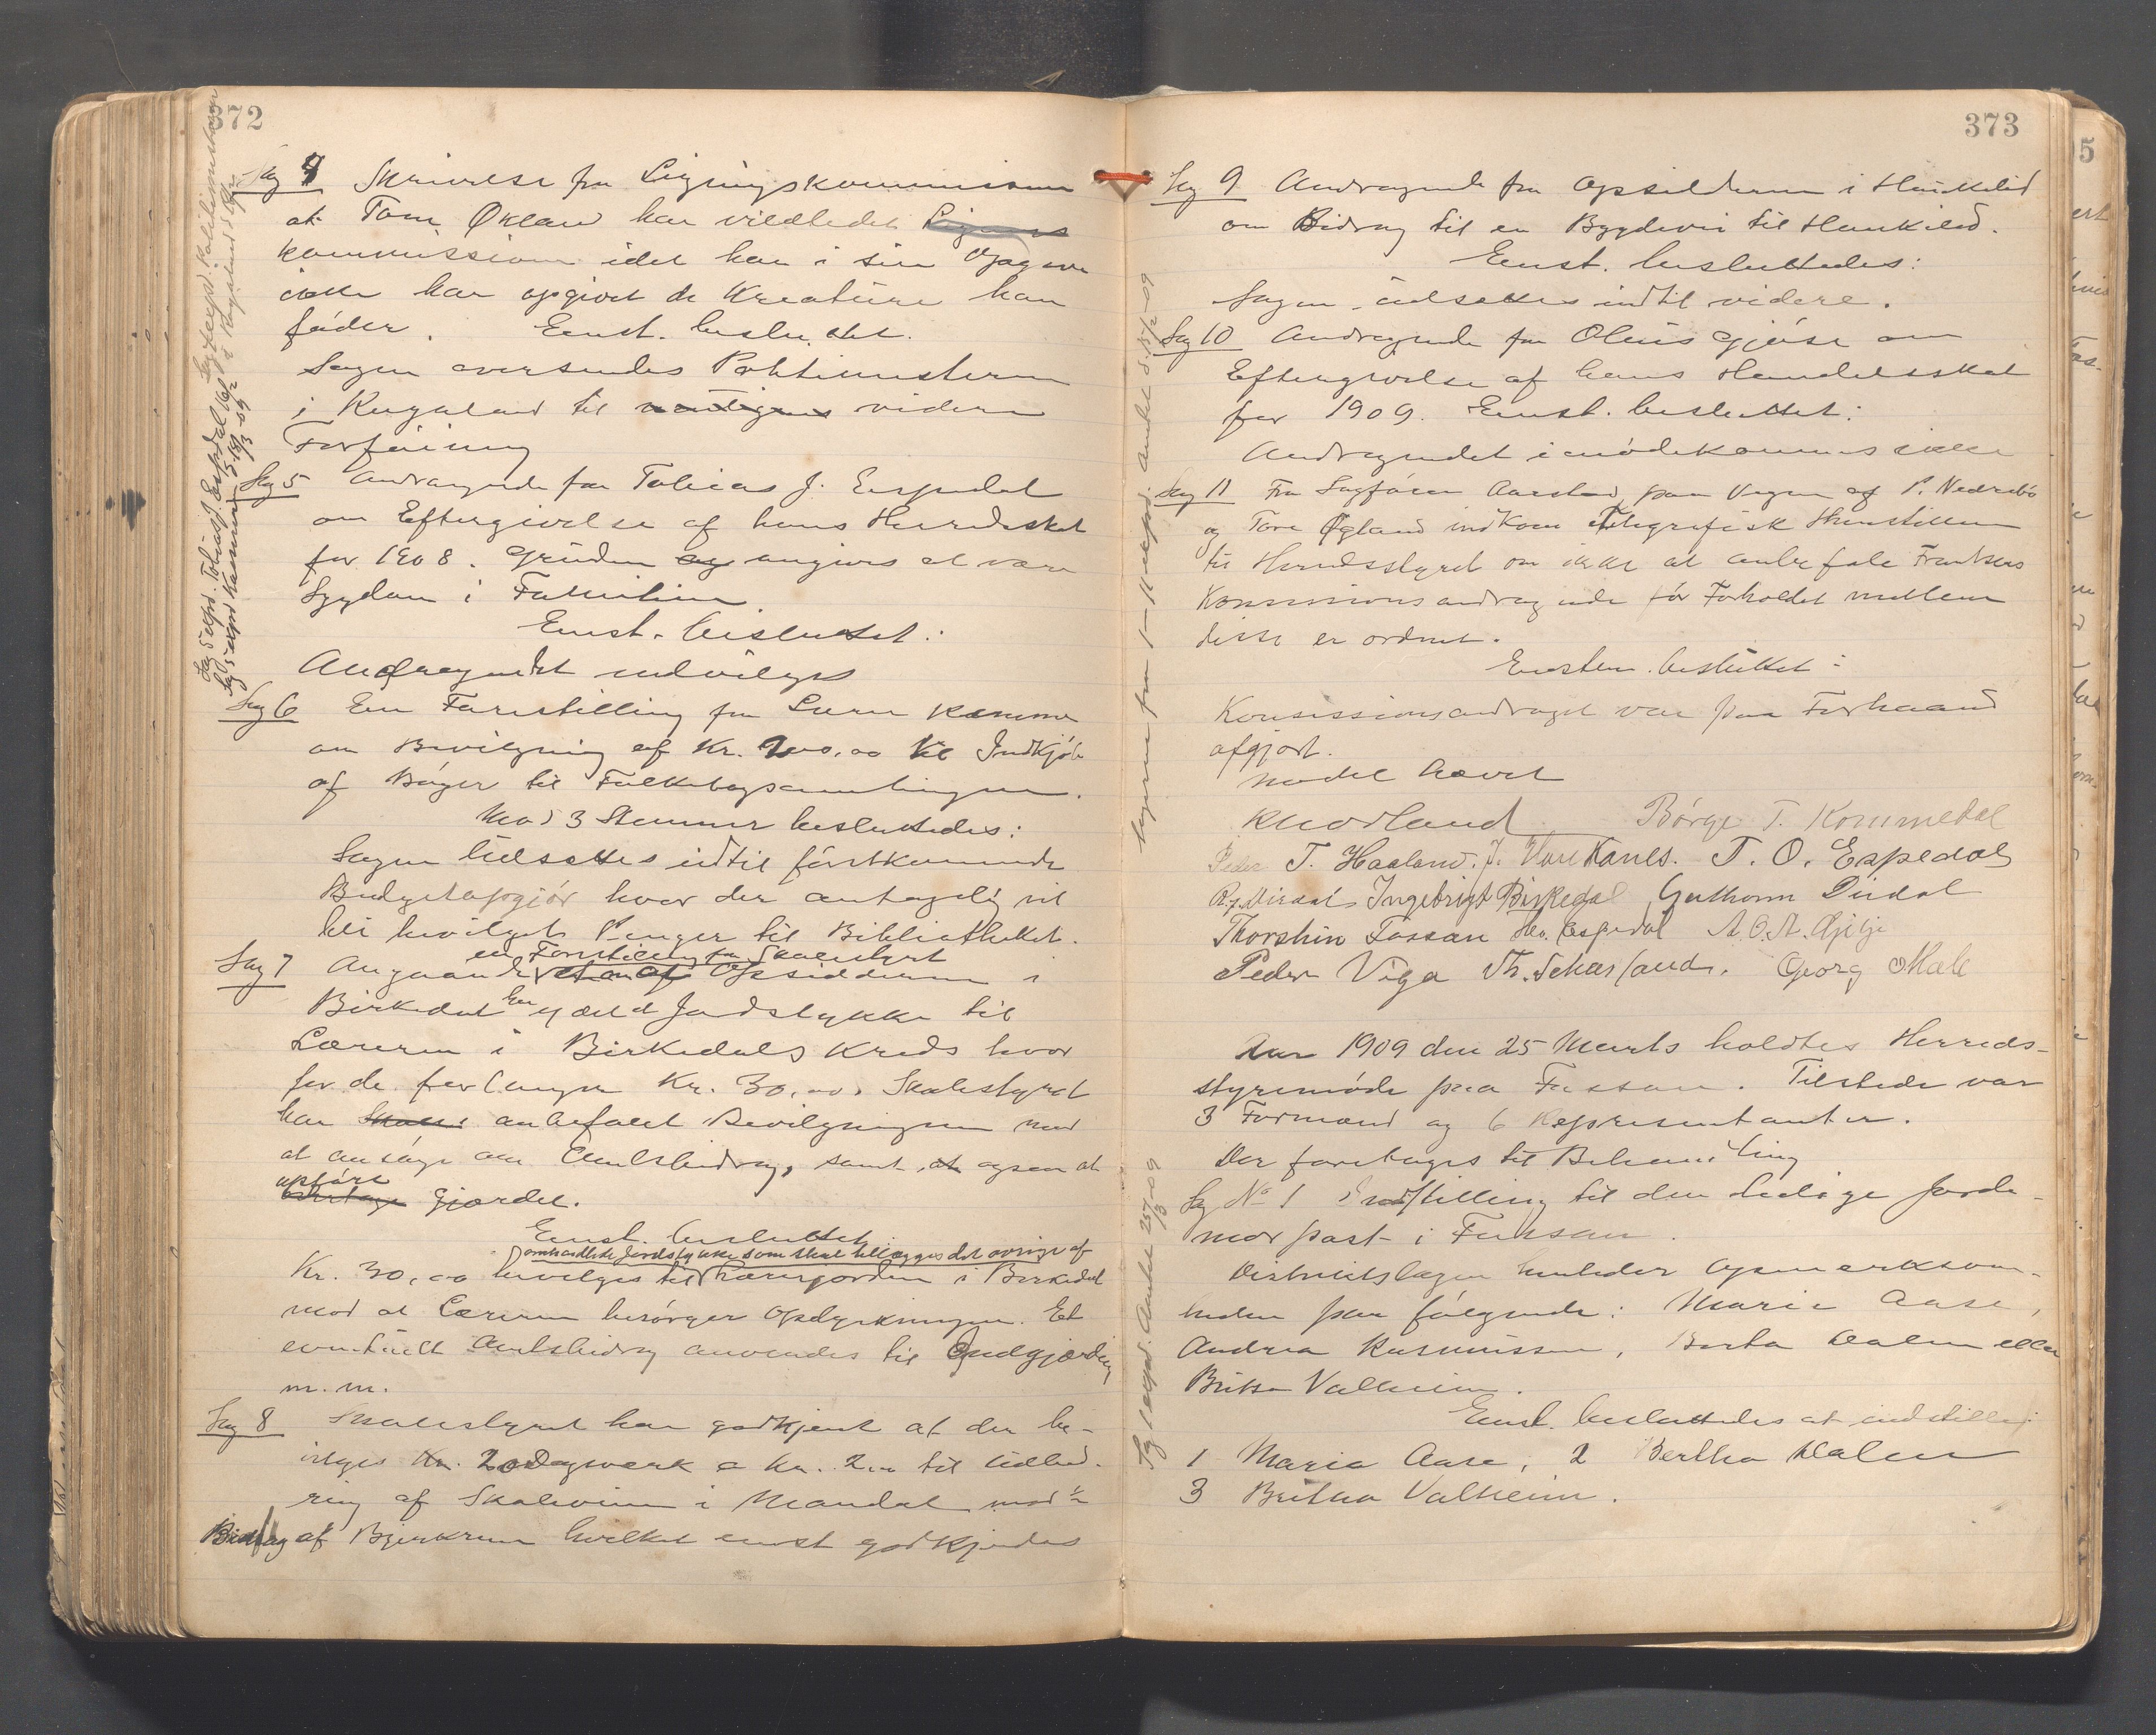 372
Sag 4 Skrivelse fra Ligningskommissionen
at Tore Øklan har vildledet Lignings
kommissionen idet han i sin Opgave
ikke har opgivet de Kreature han
föder. Enst. besluttet.
Sagen oversendes Politimesteren
i Rogaland til videre
Forföining
Sag 5 Andragende fra Tobias J. Espedal
om Eftergivelse af hans Herredsskat
for 1908. Grunden og angives at være
Sygdom i Familien
Enst. besluttet:
Andragendet indvilges
Sag 6 En Forestilling fra Lærer Komme
om Bevilgning af Kr. 200,00 til Indkjöb
af Böger til Folkebogsamlingen.
Mod 3 Stemmer besluttedes:
Sagen udsættes indtil förstkommende
Budgetopgjör hvor der antagelig vil
bli bevilget Penger til Bibliotheket.
en Forestilling fra Skolestyret
Sag 7 Angaaende at en af Opsidderne i
Birkedal har Jordstykke til
Læreren i Birkedals Kreds hvor
for de forlanger Kr. 30,00. Skolestyret
har Skoles anbefalet Bevilgningen med
at ansöge om Amtsbidrag, samt at ogsaa at
opföre
Gjærdet.
Enst. besluttet
omhandlede Jordstykke som skal tillægges det övrige af
Kr. 30,00 bevilges til Lærerjorden i Birkedal
mod at Læreren besörger Opdyrkningen. Et
eventuelt Amtsbidrag anvendes til Indgjærding
m. m.
Sag 8 Skolestyret har godkjent at der be-
vilges Kr. 20 Dagsværk a Kr. 2,00 til Udbed-
ring af Skoleveien i Mandal mod ½
Bidrag af Bjerkrum hvilket enst godkjendes
Sag 5 expd. Tobias J. Espedal
373
Sag 9 Andragende fra Opsidderne i Haukelid
om Bidrag til en Bygdevei til Haukelid.
Enst. besluttedes:
Sagen udsættes indtil videre.
Sag 10 Andragende fra Oluis Gjöse om
Eftergivelse af hans Handelsskat
for 1909. Enst. besluttet:
Andragendet imödekommes ikke
Sag 11 Fra Sagförer Aarstad paa Vegne af P. Nedrebö
og Tore Øgland indkom Telegrafisk Henstillen
til Herredsstyret om ikke at anbefale Frantsens
Konsessionsandragende för Forholdet mellem
disse er ordnet.
Enstem. besluttet:
Konsessionsandraget var paa Forhaand
afgjort.
Mödet hævet
Børge T. Kommedal
Peder T. Haaland. T. O. Espedal
Ingebrigt Birkedal Guthorm Dirdal
Thorstein Fossan Espedal A. O. A. Gilje
Peder Viga Georg Mæle
Aar 1909 den 25 Marts holdtes Herreds-
styremöde paa Fossan. Tilstede var
3 Formænd og 6 Repræsentanter.
Der foretages til Behandling
Sag No 1 Indstilling til den ledige Jorde-
mor post i Fossan.
Distriktslægen henleder Opmærksom-
heden paa fölgende: Marie Aase,
Andrea Rasmussen, Berta Dalen eller
Britha Valheim.
Enst. besluttedes at indstille:
1 Maria Aase, 2 Bertha Dalen
3 Britha Valheim.